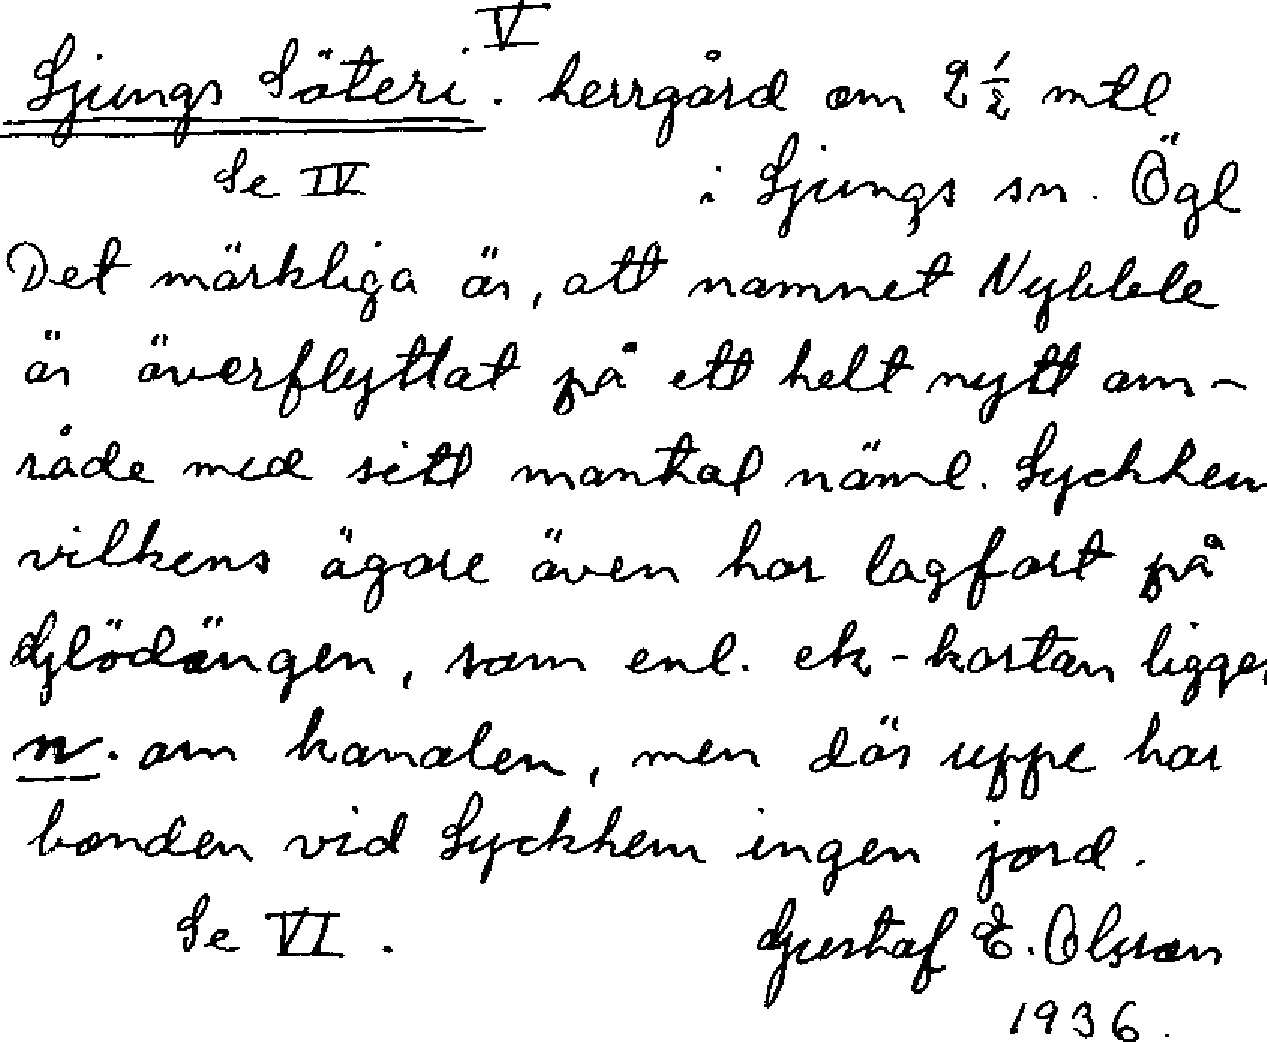 V
Ljungs Säteri. herrgård om 2 1/2 mtl
Se IV
i Ljungs sn. Ögl
Det märkliga är, att namnet Nybble
är överflyttat på ett helt nytt om-
råde med sitt mantal näml. Lyckhem
vilkens ägare även har lagfart på
Glödängen, som enl. ek-kartan ligger
n. om kanalen, men där uppe har
bonden vid Lyckhem ingen jord.
Se VI.
Gustaf E. Olsson
1936.